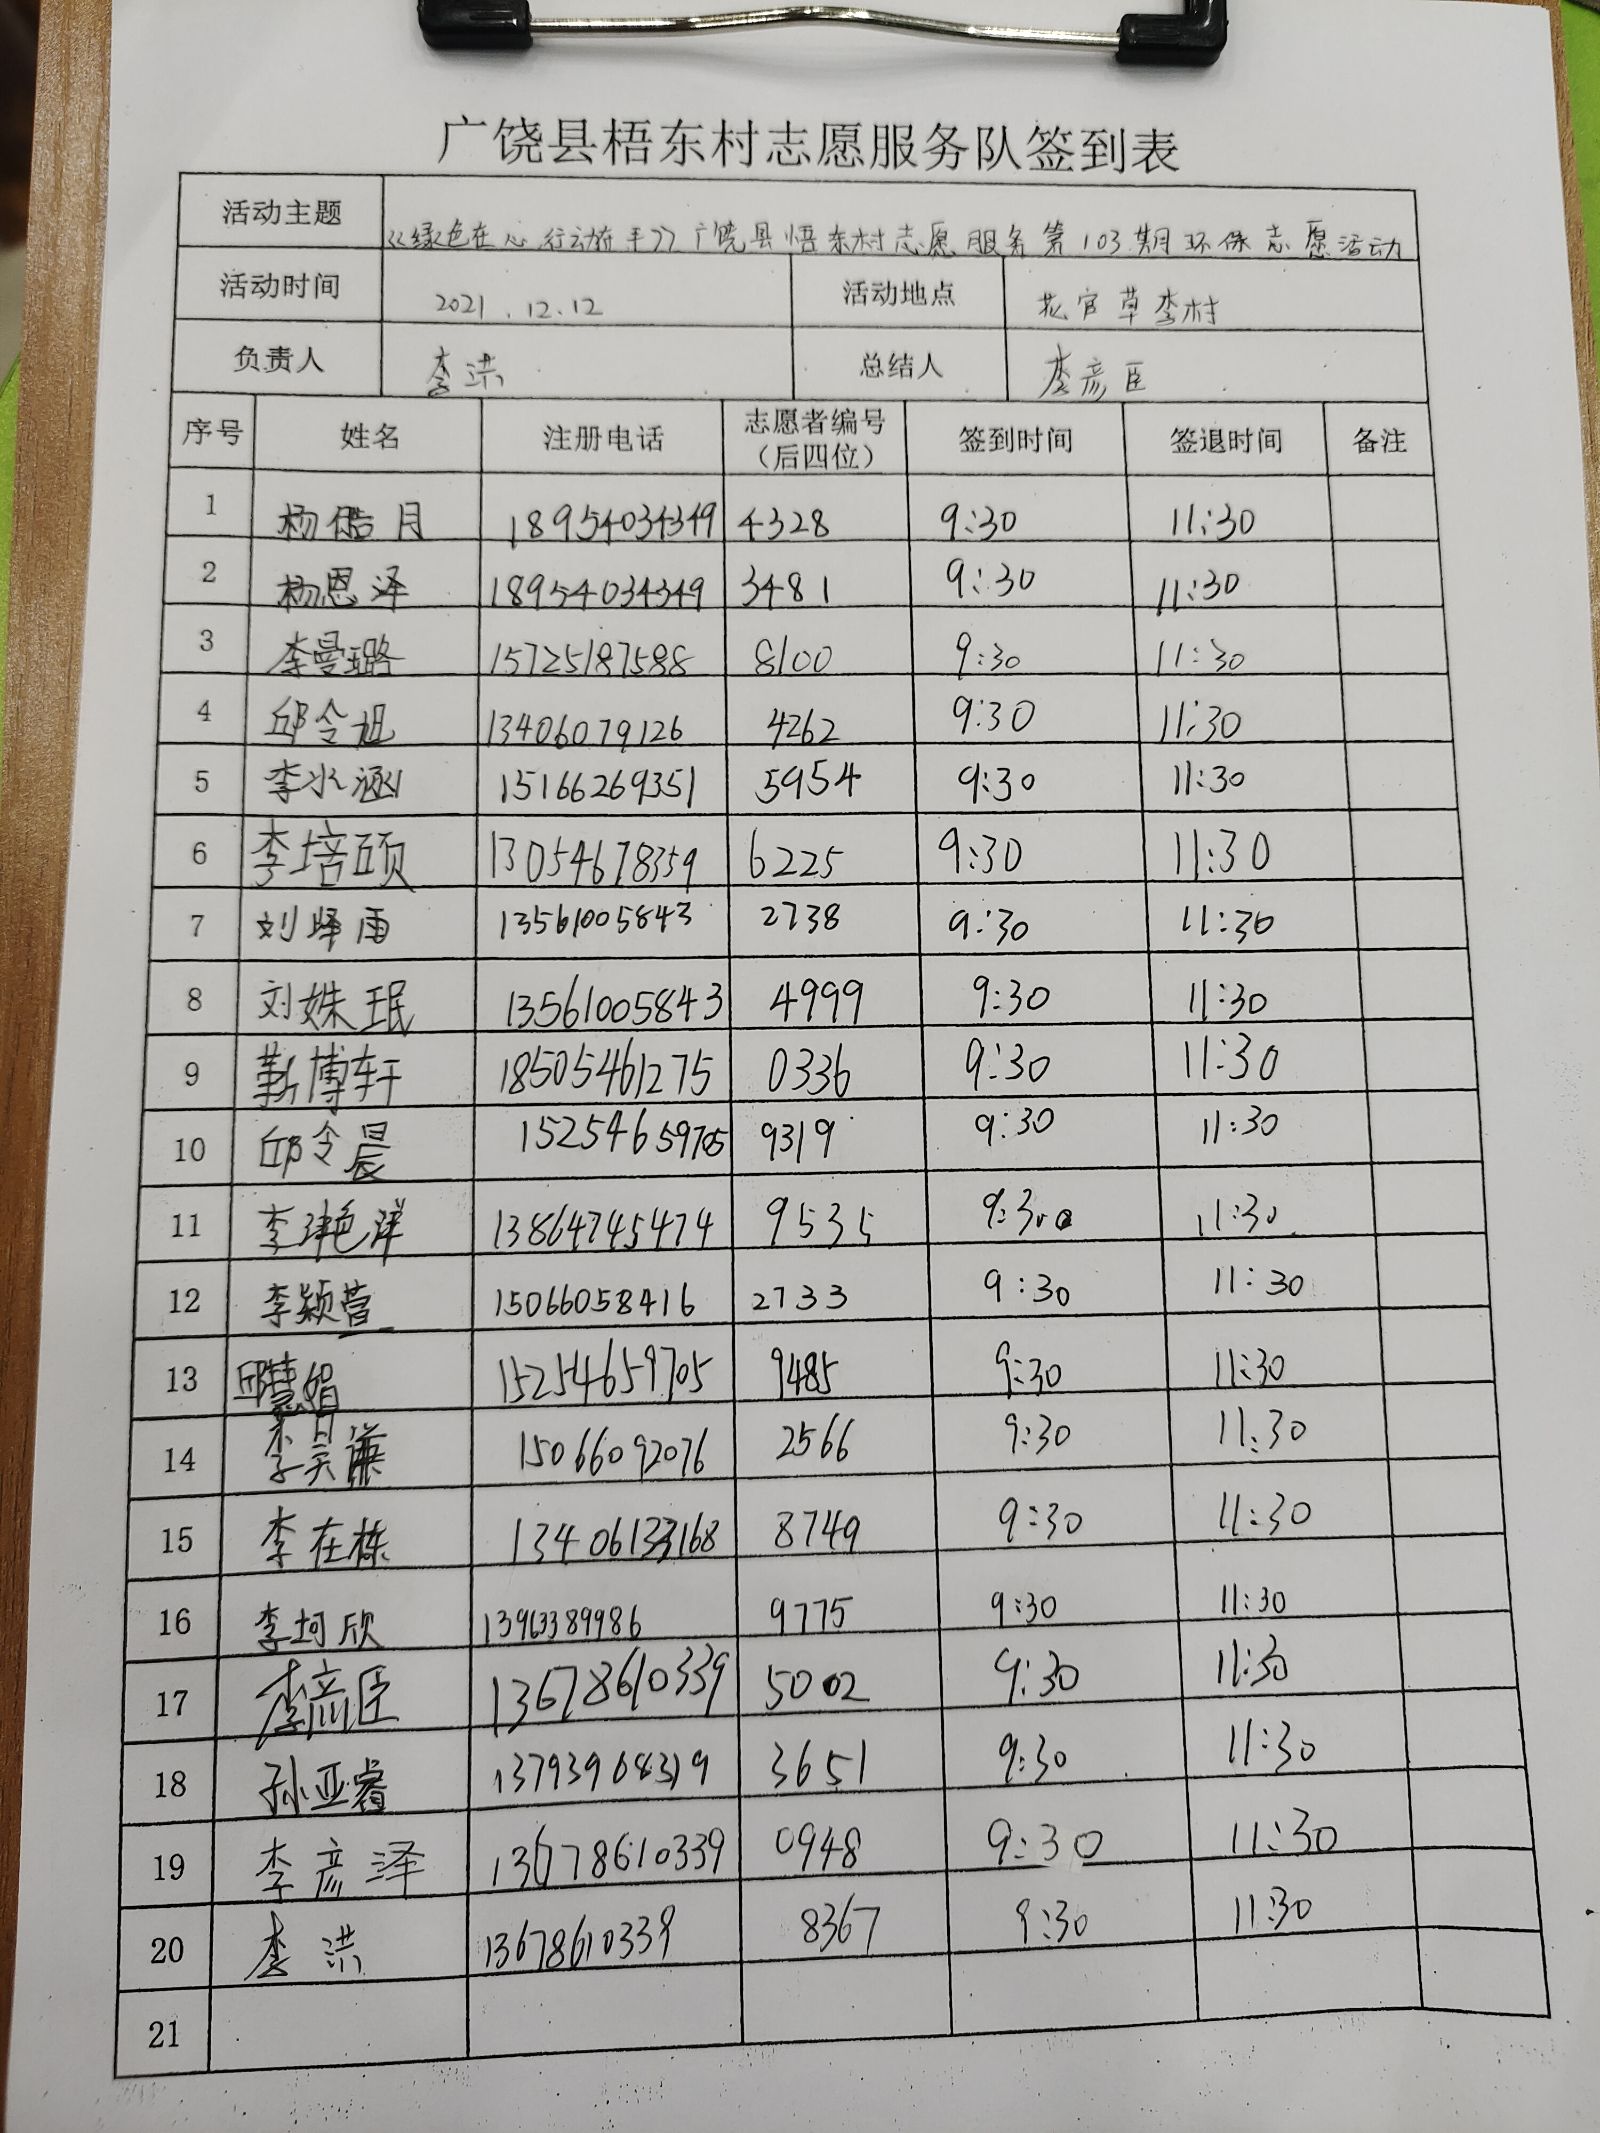 广饶县梧东村志愿服务队签到表
活动主题 《绿色在心 行动在手》广饶县悟东村志愿服务第103期环保志愿活动
活动时间 2021.12.12 活动地点 花官草李村
负责人 李洪 总结人 李彦臣
序号 姓名 注册电话 志愿者编号（后四位） 签到时间 签退时间 备注
1 杨皓月 18954034349 4328 9:30 11:30
2 杨恩泽 18954034349 3481 9:30 11:30
3 李曼璐 15725187588 8100 9:30 11:30
4 邱令旭 13406079126 4262 9:30 11:30
5 李冰涵 15166269351 5954 9:30 11:30
6 李培硕 13054678359 6225 9:30 11:30
7 刘烨雨 13561005843 2738 9:30 11:30
8 刘姝珉 13561005843 4999 9:30 11:30
9 博轩 18505461275 0336 9:30 11:30
10 邱令晨 15254659705 9319 9:30 11:30
11 李洋 13864745474 9535 9:30 11:30
12 李颖萱 15066058416 2733 9:30 11:30
13 邱慧娟 15254659705 9485 9:30 11:30
14 李昊谦 15066092076 2566 9:30 11:30
15 李在栋 13406133168 8749 9:30 11:30
16 李珂欣 13963389986 9775 9:30 11:30
17 李彦臣 13678610339 5002 9:30 11:30
18 孙亚睿 13793968319 3651 9:30 11:30
19 李彦泽 13678610339 0948 9:30 11:30
20 李洪 13678610339 8367 9:30 11:30
21